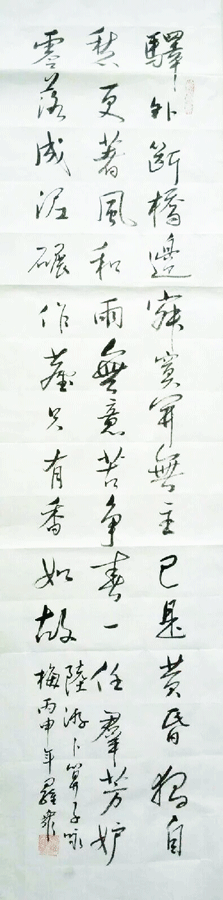 驛外斷橋邊寂寞開無主已是黃昏獨自
愁更著風和雨無意苦争春一任羣芳妒
零落成泥碾作塵只有香如故
陸游卜算子咏
梅丙申年羅